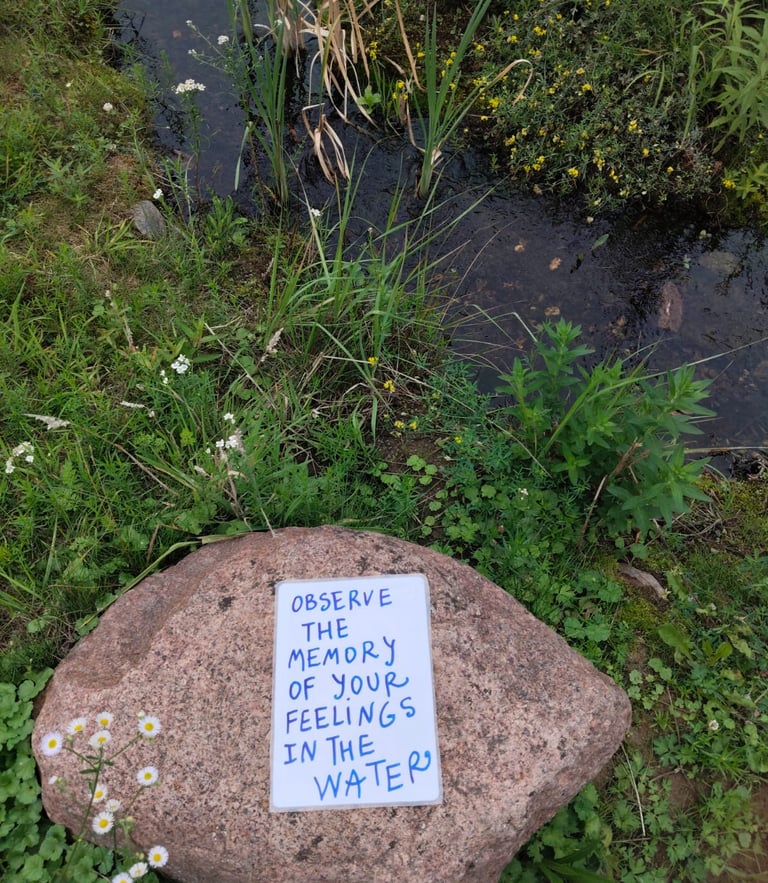 OBSERVE
THE
MEMORY
OF YOUR
FEELINGS
IN THE
WATER